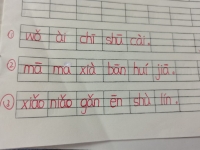 ① wǒ ài chī shū cài.
② mā ma xià bān huí jiā.
③ xiǎo niǎo gǎn ēn shù lín.